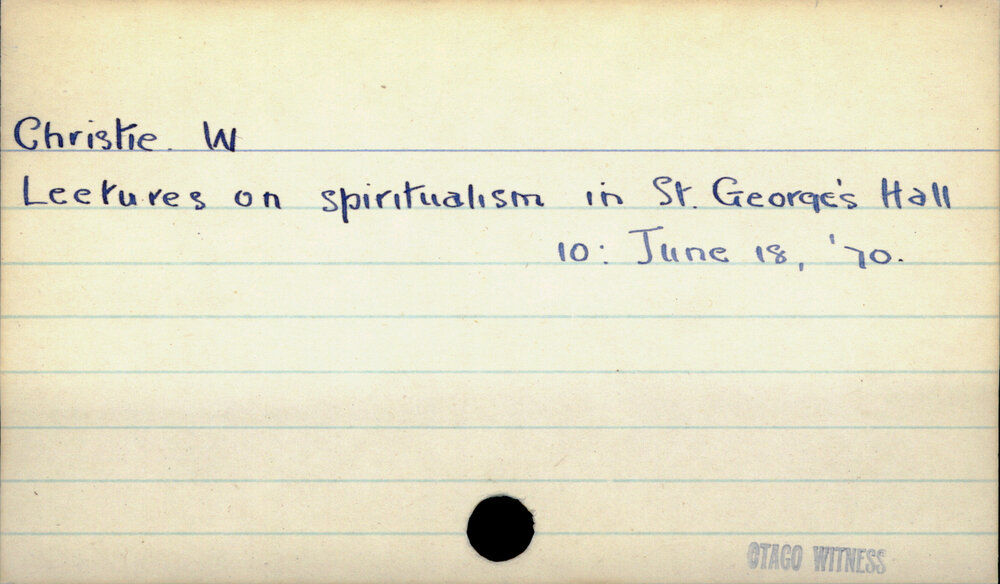 Christie. W
Lectures on spiritualism in St. George's Hall
10: June 18, '70.
OTAGO WITNESS